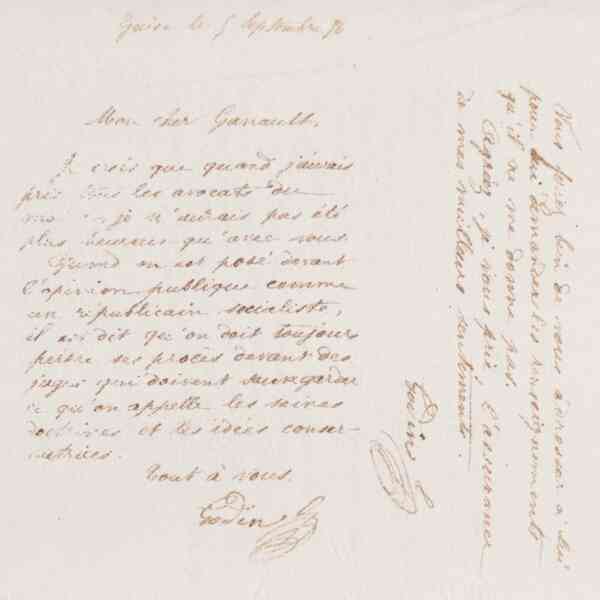 Guise le 5 Septembre 76
Mon cher Ganault,
Je crois que quand j'aurais
pris tous les avocats du
je n'aurais pas été
plus heureux qu'avec vous.
Quand on est posé devant
l'opinion publique comme
un républicain socialiste,
il est dit qu'on doit toujours
perdre ses procès devant des
juges qui doivent sauvegarder
ce qu'on appelle les saines
doctrines et les idées conser-
vatrices.
Tout à vous.
Godin
Vous feriez bien de vous adresser à lui
pour lui demander les renseignements
qu'il ne me donne pas.
Agréez, je vous prie, l'assurance
de mes meilleurs sentiments.
Godin